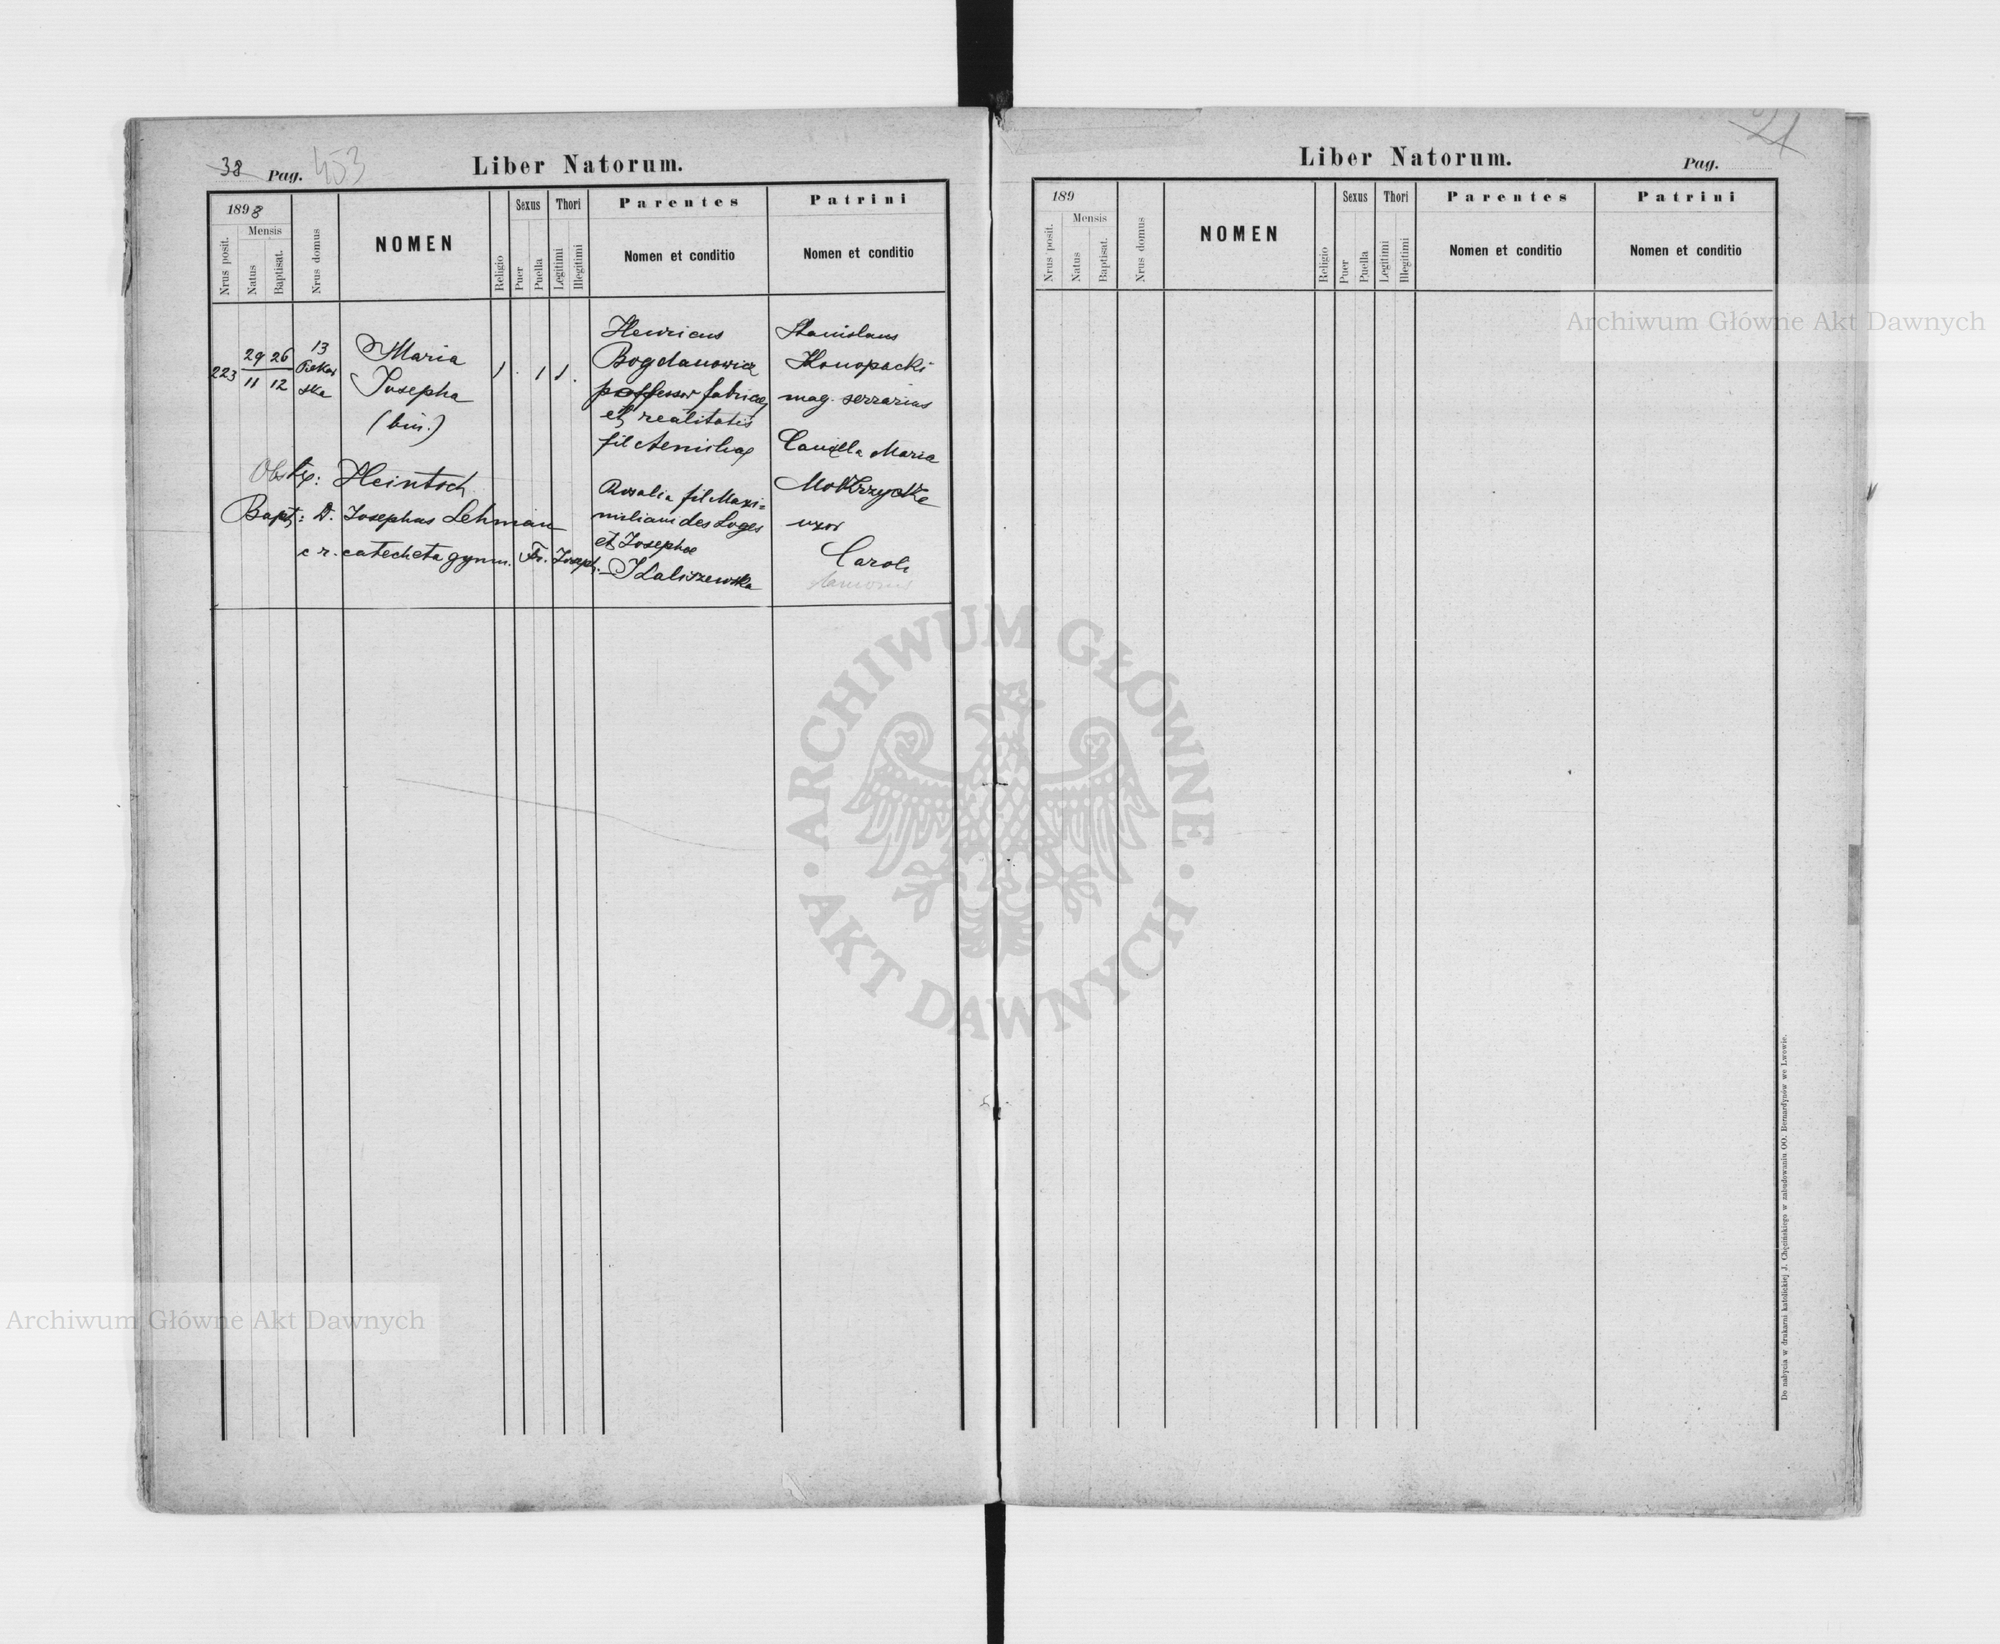 38 Pag. 453
Liber Natorum.
1898
Mensis
Nrus posit.
Natus
Baptisat.
Nrus domus
NOMEN
Religio
Sexus
Puer
Puella
Thori
Legitimi
Illegitimi
Parentes
Nomen et conditio
Patrini
Nomen et conditio
223
29 26
11 12
13
Piekar
ska
Maria
Josepha
(bin.)
1 . 1 1 .
Henricus
Bogdanowicz
possessor fabricae
et realitatis
fil
Rosalia fil Maxi=
miliani des Loges
et Josephae
Kaliszewska
Stanislaus
Konopacki
mag. serrarius
Camilla Maria
Mokrzycka
uxor
Caroli
Obstx: Heintsch
Bapt: D. Josephus Lehman
c r. catecheta gymn. Fr. Joseph.
21
Liber Natorum.
Pag.
189
Mensis
Nrus posit.
Natus
Baptisat.
Nrus domus
NOMEN
Religio
Sexus
Puer
Puella
Thori
Legitimi
Illegitimi
Parentes
Nomen et conditio
Patrini
Nomen et conditio
Do nabycia w drukarni katolickiej J. Chęcińskiego w zabudowaniu OO. Bernardynów we Lwowie.
Archiwum Główne Akt Dawnych
ARCHIWUM GŁÓWNE
AKT DAWNYCH
Archiwum Główne Akt Dawnych